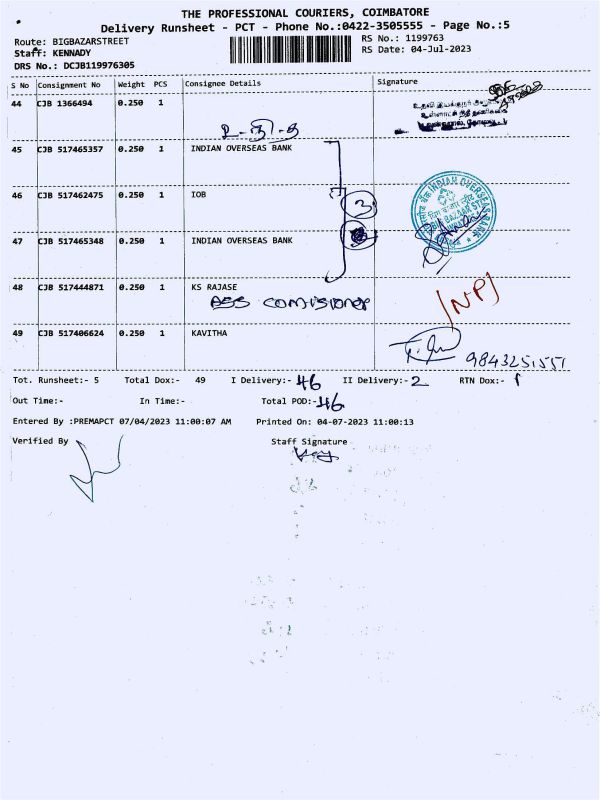 THE PROFESSIONAL COURIERS, COIMBATORE
Delivery Runsheet - PCT - Phone No.:0422-3505555 - Page No.:5
Route: BIGBAZARSTREET
RS No.: 1199763
Staff: KENNADY
RS Date: 04-Jul-2023
DRS No.: DCJB119976305
S No Consignment No Weight PCS Consignee Details Signature
44 CJB 1366494 0.250 1
உ-நி-த
45 CJB 517465357 0.250 1 INDIAN OVERSEAS BANK
46 CJB 517462475 0.250 1 IOB
3
47 CJB 517465348 0.250 1 INDIAN OVERSEAS BANK
INDIAN OVERSEAS BANK
48 CJB 517444871 0.250 1 KS RAJASE
ASS COMISIONER
NP
49 CJB 517406624 0.250 1 KAVITHA
9843251551
Tot. Runsheet:- 5 Total Dox:- 49 I Delivery:- 46 II Delivery:- 2 RTN Dox:- 1
Out Time:- In Time:- Total POD:- 46
Entered By :PREMAPCT 07/04/2023 11:00:07 AM Printed On: 04-07-2023 11:00:13
Verified By Staff Signature